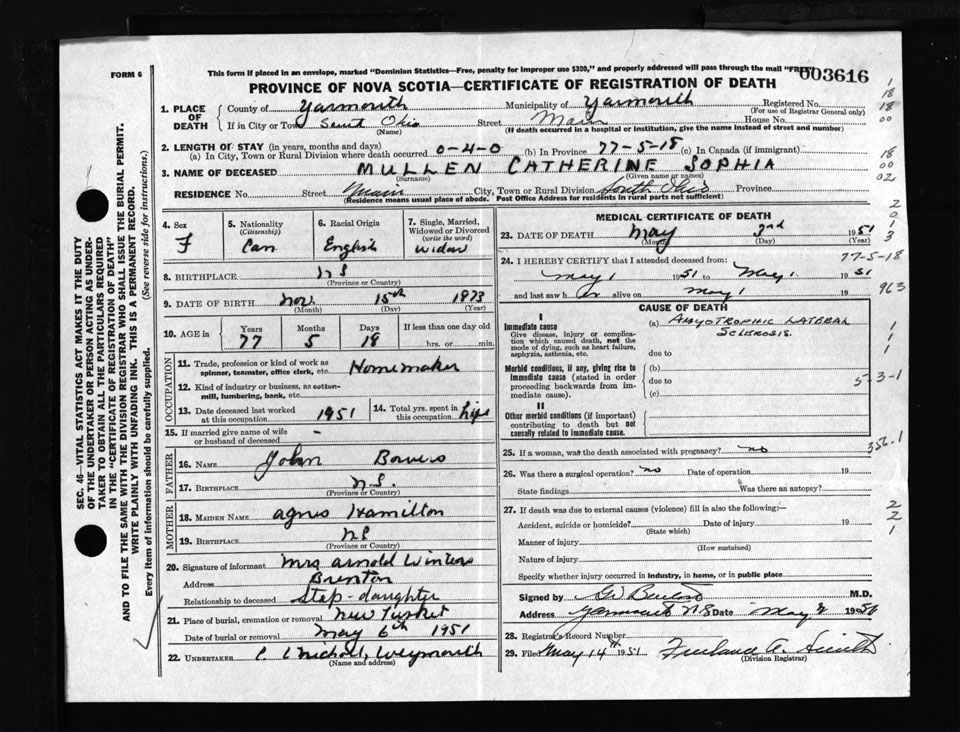 FORM 6
This form if placed in an envelope, marked "Dominion Statistics—Free, penalty for improper use $300," and properly addressed will pass through the mail "FREE"
003616
PROVINCE OF NOVA SCOTIA—CERTIFICATE OF REGISTRATION OF DEATH
1. PLACE OF DEATH
County of Yarmouth Municipality of Yarmouth Registered No.
(For use of Registrar General only)
If in City or Town South Ohio Street Main House No.
(Name) (If death occurred in a hospital or institution, give the name instead of street and number)
2. LENGTH OF STAY (in years, months and days)
(a) In City, Town or Rural Division where death occurred 0-4-0 (b) In Province 77-5-18 (c) In Canada (if immigrant)
3. NAME OF DECEASED MULLEN CATHERINE SOPHIA
(Surname) (Given name or names)
RESIDENCE No. Street Main City, Town or Rural Division South Ohio Province
(Residence means usual place of abode. Post Office Address for residents in rural parts not sufficient)
4. Sex F
5. Nationality (Citizenship) Can
6. Racial Origin English
7. Single, Married, Widowed or Divorced (write the word) widow
8. BIRTHPLACE NS
(Province or Country)
9. DATE OF BIRTH Nov. 15th 1873
(Month) (Day) (Year)
10. AGE in Years 77 Months 5 Days 18 If less than one day old hrs. or min.
OCCUPATION
11. Trade, profession or kind of work as spinner, teamster, office clerk, etc. Homemaker
12. Kind of industry or business, as cotton-mill, lumbering, bank, etc.
13. Date deceased last worked at this occupation 1951
14. Total yrs. spent in this occupation Life
15. If married give name of wife or husband of deceased -
FATHER
16. NAME John Bowers
17. BIRTHPLACE N.S.
(Province or Country)
MOTHER
18. MAIDEN NAME Agnes Hamilton
19. BIRTHPLACE NS
(Province or Country)
20. Signature of informant Mrs Arnold Winters
Address Brenton
Relationship to deceased Step-daughter
21. Place of burial, cremation or removal New Tusket
Date of burial or removal May 6th 1951
22. UNDERTAKER Weymouth
(Name and address)
MEDICAL CERTIFICATE OF DEATH
23. DATE OF DEATH May 3rd 1951
(Month) (Day) (Year)
24. I HEREBY CERTIFY that I attended deceased from:
May 1 1951 to May 1 1951
and last saw her alive on May 1 19
CAUSE OF DEATH
I
Immediate cause
Give disease, injury or complication which caused death, not the mode of dying, such as heart failure, asphyxia, asthenia, etc.
(a) AMYOTROPHIC LATERAL SCLEROSIS.
due to
Morbid conditions, if any, giving rise to immediate cause (stated in order proceeding backwards from immediate cause).
(b)
due to
(c)
II
Other morbid conditions (if important) contributing to death but not causally related to immediate cause.
25. If a woman, was the death associated with pregnancy? no
26. Was there a surgical operation? no Date of operation 19
State findings Was there an autopsy?
27. If death was due to external causes (violence) fill in also the following:—
Accident, suicide or homicide? Date of injury 19
(State which)
Manner of injury
(How sustained)
Nature of injury
Specify whether injury occurred in industry, in home, or in public place
Signed by M.D.
Address Yarmouth N.S Date May
28. Registrar's Record Number
29. Filed May 14th 1951
(Division Registrar)
SEC. 46—VITAL STATISTICS ACT MAKES IT THE DUTY OF THE UNDERTAKER OR PERSON ACTING AS UNDERTAKER TO OBTAIN ALL THE PARTICULARS REQUIRED IN THE "CERTIFICATE OF REGISTRATION OF DEATH" AND TO FILE THE SAME WITH THE DIVISION REGISTRAR WHO SHALL ISSUE THE BURIAL PERMIT.
WRITE PLAINLY WITH UNFADING INK. THIS IS A PERMANENT RECORD.
Every item of information should be carefully supplied. (See reverse side for instructions.)
1
18
18
00
18
00
02
2
0
1
3
77-5-18
963
1
1
1
5-3-1
356.1
2
2
1